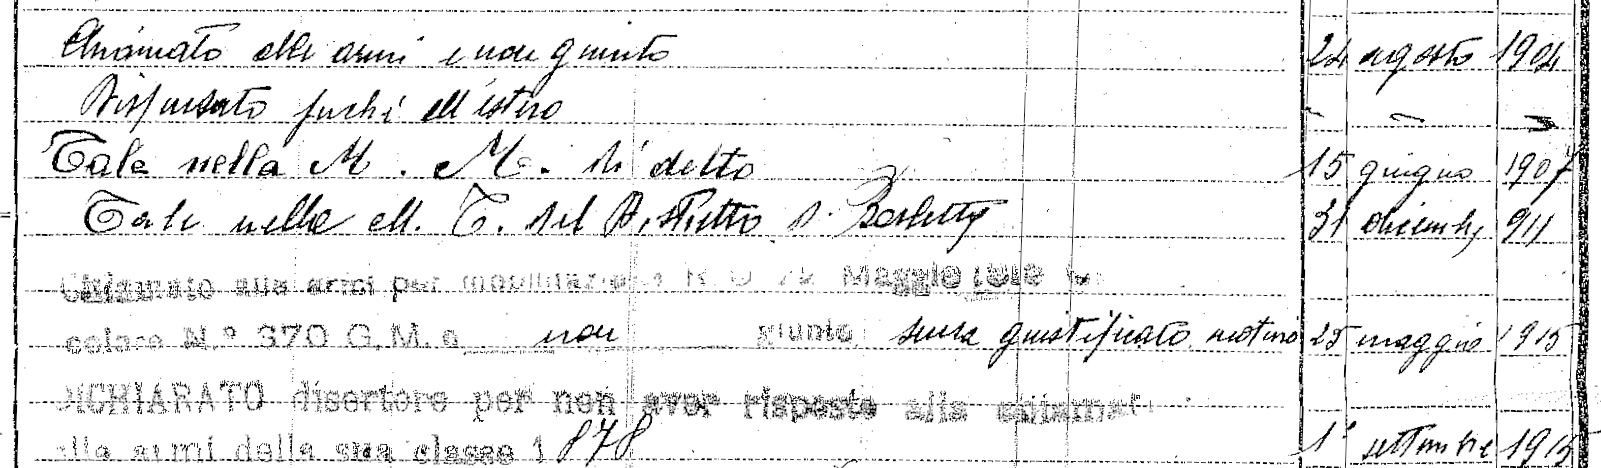 Chiamato alle armi e non giunto 24 agosto 1904
Dispensato perché all'estero
Tale nella M. M. di detto 15 giugno 1907
Tale nella M. T. del Distretto di Barletta 31 dicembre 911
Chiamato alle armi per mobilitazione R. D. 22 Maggio 1915 Cir
colare N.° 370 G. M. e non giunto senza giustificato motivo 25 maggio 1915
DICHIARATO disertore per non aver risposto alla chiamata
alle armi della sua classe 1878 1° settembre 1915